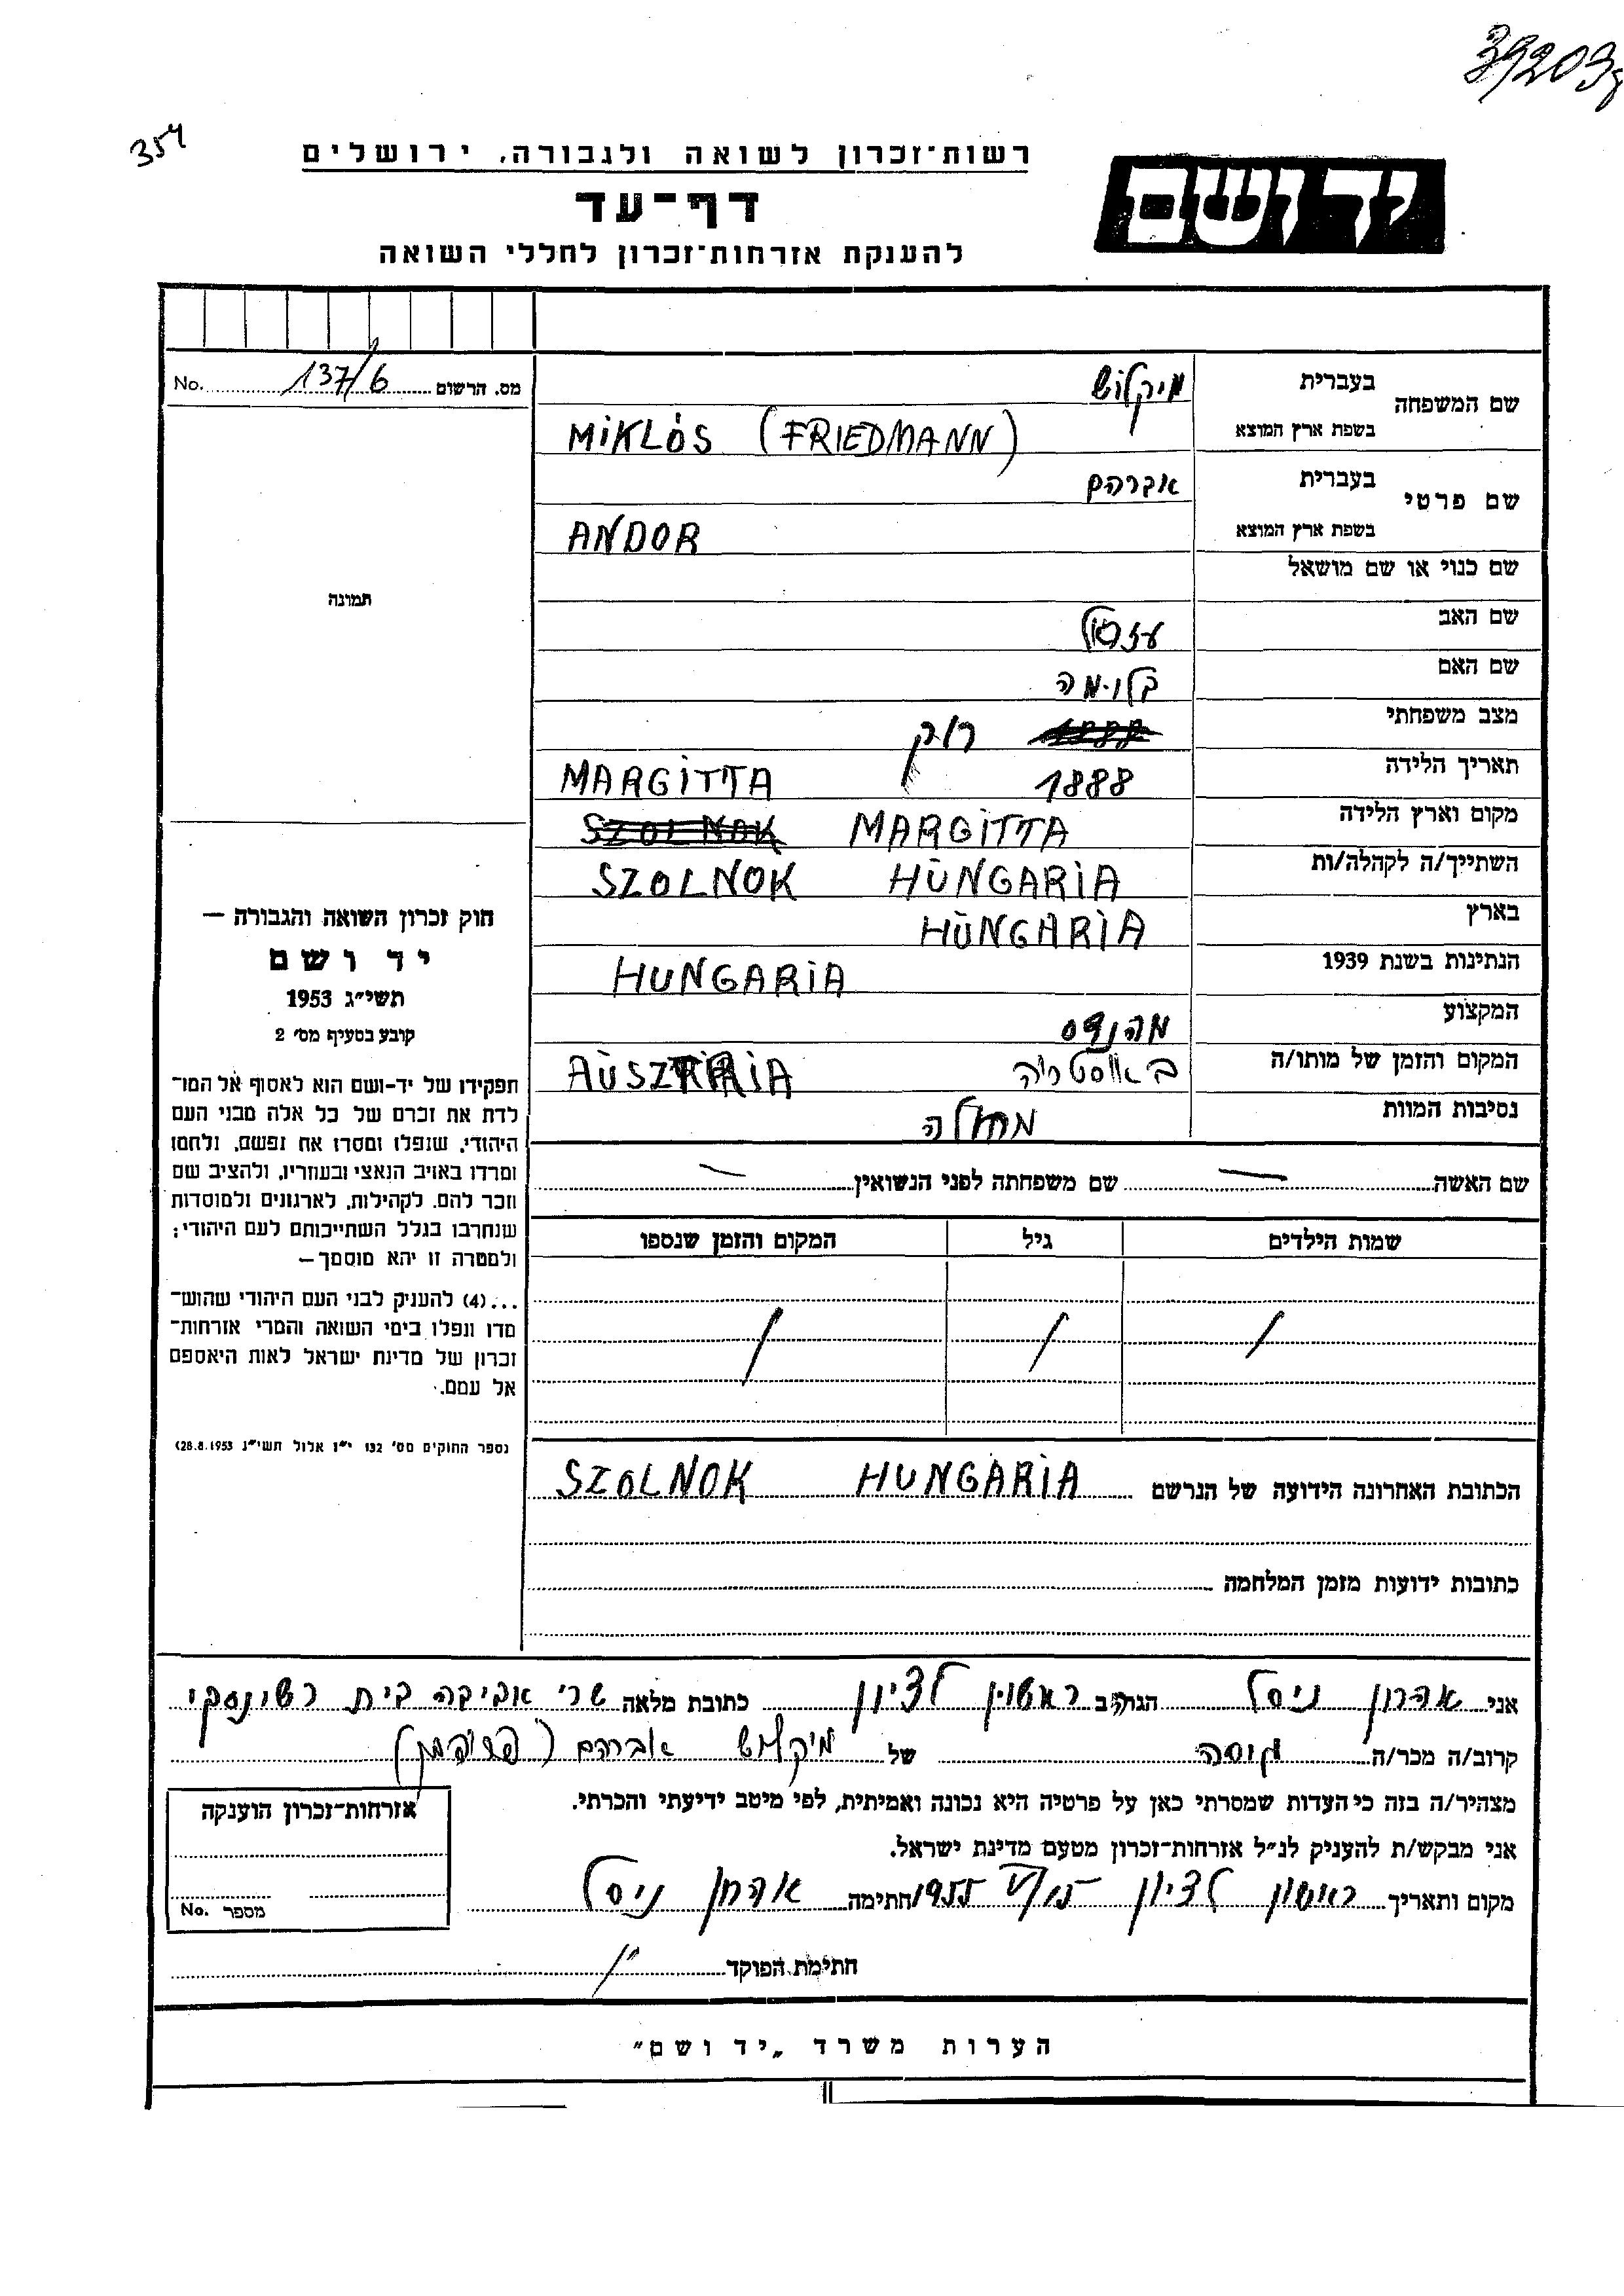 39203
354
יד ושם
רשות־זכרון לשואה ולגבורה, ירושלים
דף־עד
להענקת אזרחות־זכרון לחללי השואה
מס. הרשום 137/6 No.
שם המשפחה
בעברית מיקלוש
בשפת ארץ המוצא MIKLÓS (FRIEDMANN)
שם פרטי
בעברית אברהם
בשפת ארץ המוצא ANDOR
שם כנוי או שם מושאל
תמונה
שם האב עזריאל
שם האם בלומה
מצב משפחתי 1888 רווק
תאריך הלידה 1888 MARGITTA
מקום וארץ הלידה SZOLNOK MARGITTA
השתייך/ה לקהלה/ות SZOLNOK HUNGARIA
בארץ HUNGARIA
הנתינות בשנת 1939 HUNGARIA
המקצוע מהנדס
המקום והזמן של מותו/ה באוסטריה AUSZTRIA
נסיבות המוות מחלה
שם האשה — שם משפחתה לפני הנשואין —
שמות הילדים גיל המקום והזמן שנספו
הכתובת האחרונה הידועה של הנרשם SZOLNOK HUNGARIA
כתובות ידועות מזמן המלחמה
חוק זכרון השואה והגבורה —
יד ושם
תשי״ג 1953
קובע בסעיף מס׳ 2
תפקידו של יד-ושם הוא לאסוף אל המו־
לדת את זכרם של כל אלה מבני העם
היהודי, שנפלו ומסרו את נפשם, נלחמו
ומרדו באויב הנאצי ובעוזריו, ולהציב שם
וזכר להם, לקהילות, לארגונים ולמוסדות
שנחרבו בגלל השתייכותם לעם היהודי;
ולמטרה זו יהא מוסמך—
...(4) להעניק לבני העם היהודי שהוש־
מדו ונפלו בימי השואה והמרי אזרחות־
זכרון של מדינת ישראל לאות היאספם
אל עמם.
(ספר החוקים מס׳ 132 י״ז אלול תשי״ג 28.8.1953)
אני אהרון ניסל הגר/ה ב ראשון לציון כתובת מלאה
קרוב/ה מכר/ה של מיקלוש אברהם (פרידמן)
מצהיר/ה בזה כי העדות שמסרתי כאן על פרטיה היא נכונה ואמיתית, לפי מיטב ידיעתי והכרתי.
אני מבקש/ת להעניק לנ״ל אזרחות־זכרון מטעם מדינת ישראל.
מקום ותאריך ראשון לציון 15/VI 1955 חתימה אהרן ניסל
חתימת הפוקד
אזרחות־זכרון הוענקה
מספר No.
הערות משרד „יד ושם״